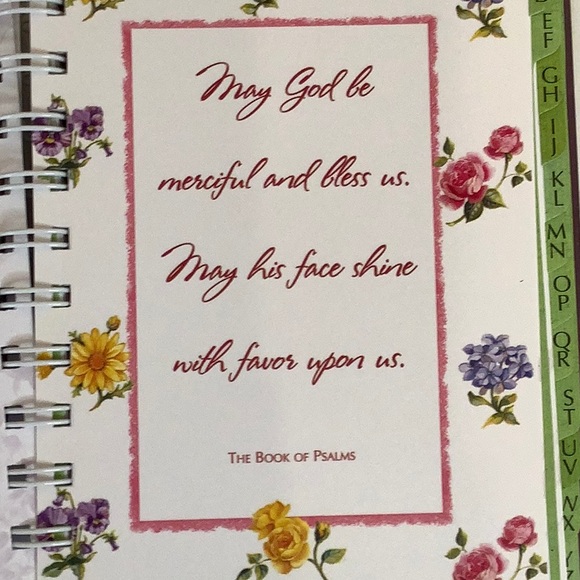 May God be
merciful and bless us.
May his face shine
with favor upon us.
THE BOOK OF PSALMS
EF
GH
IJ
KL
MN
OP
QR
ST
UV
WX